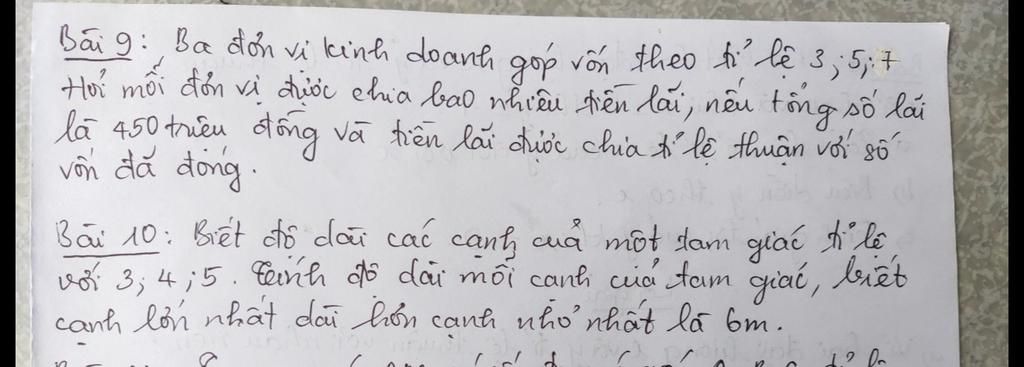 Bài 9: Ba đơn vị kinh doanh góp vốn theo tỉ lệ 3; 5; 7
Hỏi mỗi đơn vị được chia bao nhiêu tiền lãi, nếu tổng số lãi
là 450 triệu đồng và tiền lãi được chia tỉ lệ thuận với số
vốn đã đóng.
Bài 10: Biết độ dài các cạnh của một tam giác tỉ lệ
với 3; 4; 5. Tính độ dài mỗi cạnh của tam giác, biết
cạnh lớn nhất dài hơn cạnh nhỏ nhất là 6m.